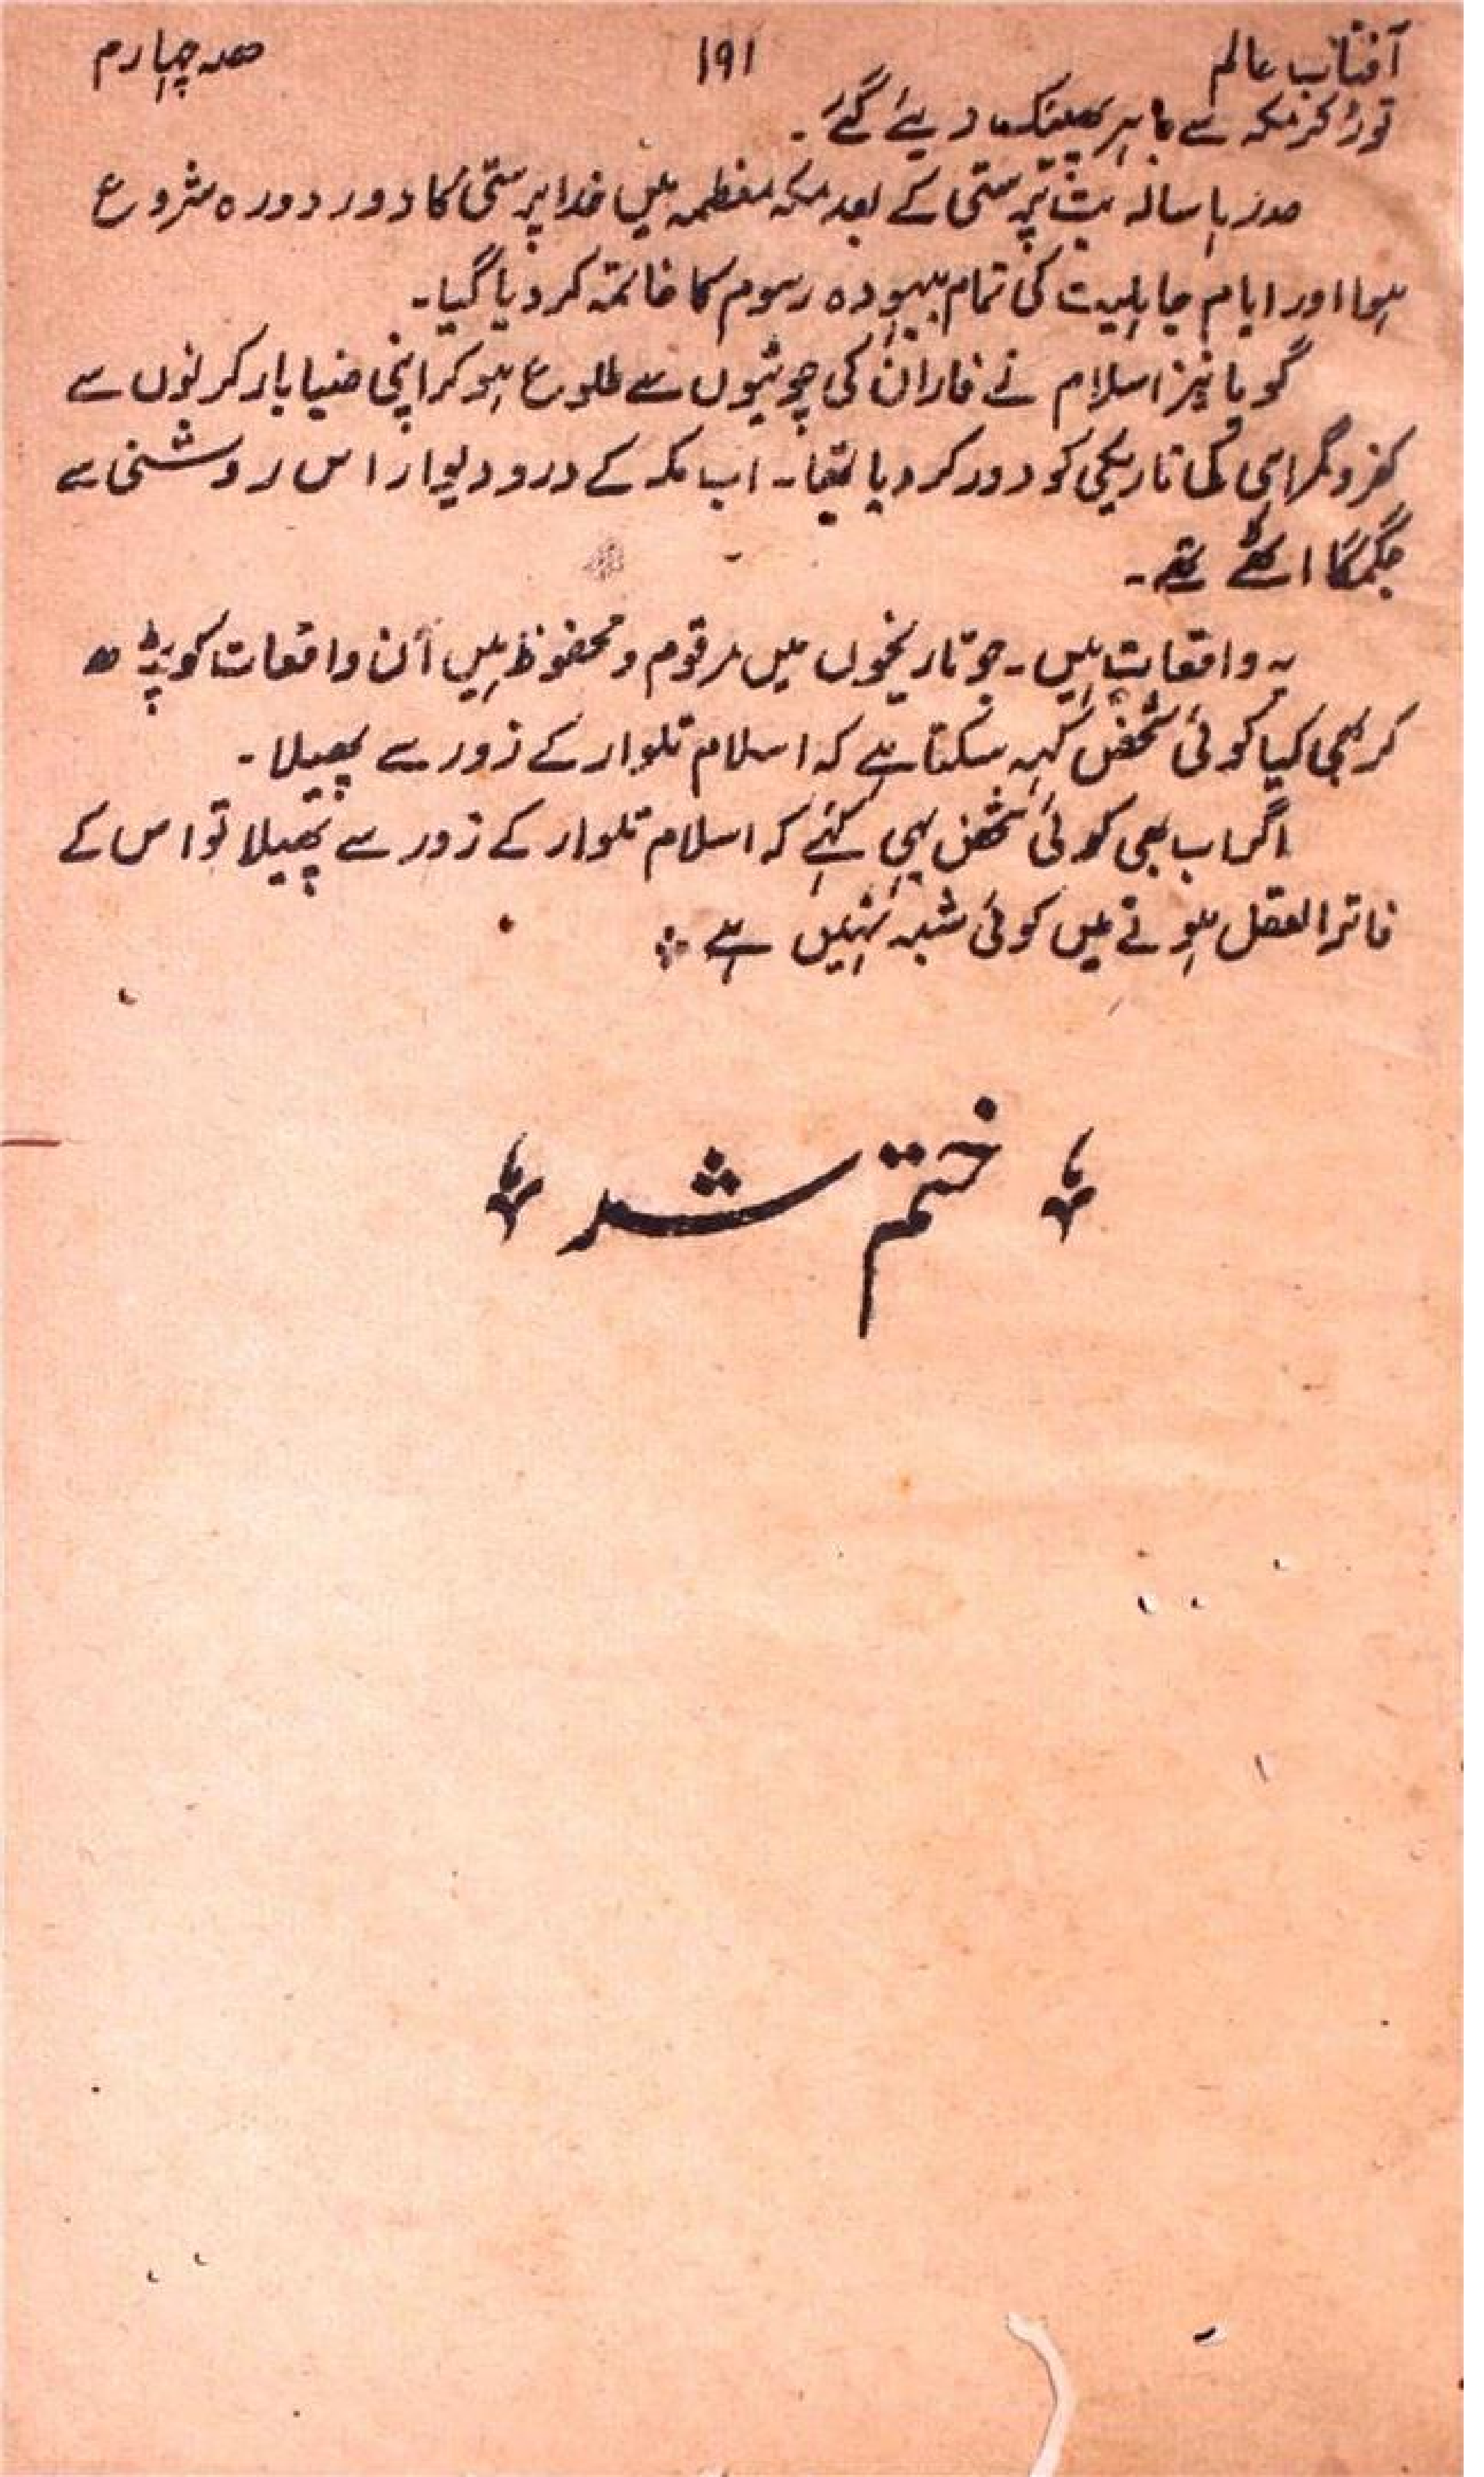 آفتاب عالم ۱۹۱ حصہ چہارم
توڑ کر مکہ سے باہر پھینک دیئے گئے۔
صدہا سالہ بت پرستی کے بعد مکہ معظمہ میں خدا پرستی کا دور دورہ شروع
ہوا اور ایام جاہلیت کی تمام بیہودہ رسوم کا خاتمہ کر دیا گیا۔
گویا نیّر اسلام نے فاران کی چوٹیوں سے طلوع ہو کر اپنی ضیا بار کرنوں سے
کفر و گمراہی کی تاریکی کو دور کر دیا تھا۔ اب مکہ کے در و دیوار اس روشنی سے
جگمگا اٹھے تھے۔
یہ واقعات ہیں۔ جو تاریخوں میں مرقوم و محفوظ ہیں اُن واقعات کو پڑھ
کر بھی کیا کوئی شخص کہہ سکتا ہے کہ اسلام تلوار کے زور سے پھیلا۔
اگر اب بھی کوئی شخص یہی کہے کہ اسلام تلوار کے زور سے پھیلا تو اس کے
فاتر العقل ہونے میں کوئی شبہ نہیں ہے
ختم شد